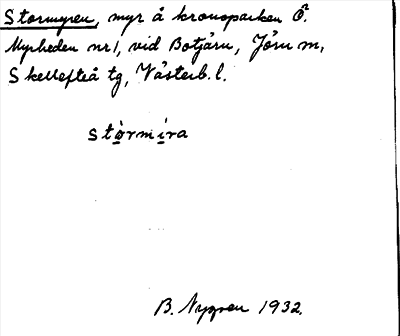 Stormyren, myr å kronoparken Ö.
Myrheden nr 1, vid Botjärn, Jörn m,
Skellefteå tg, Västerb. l.
stòrmira
B. Nygren 1932.